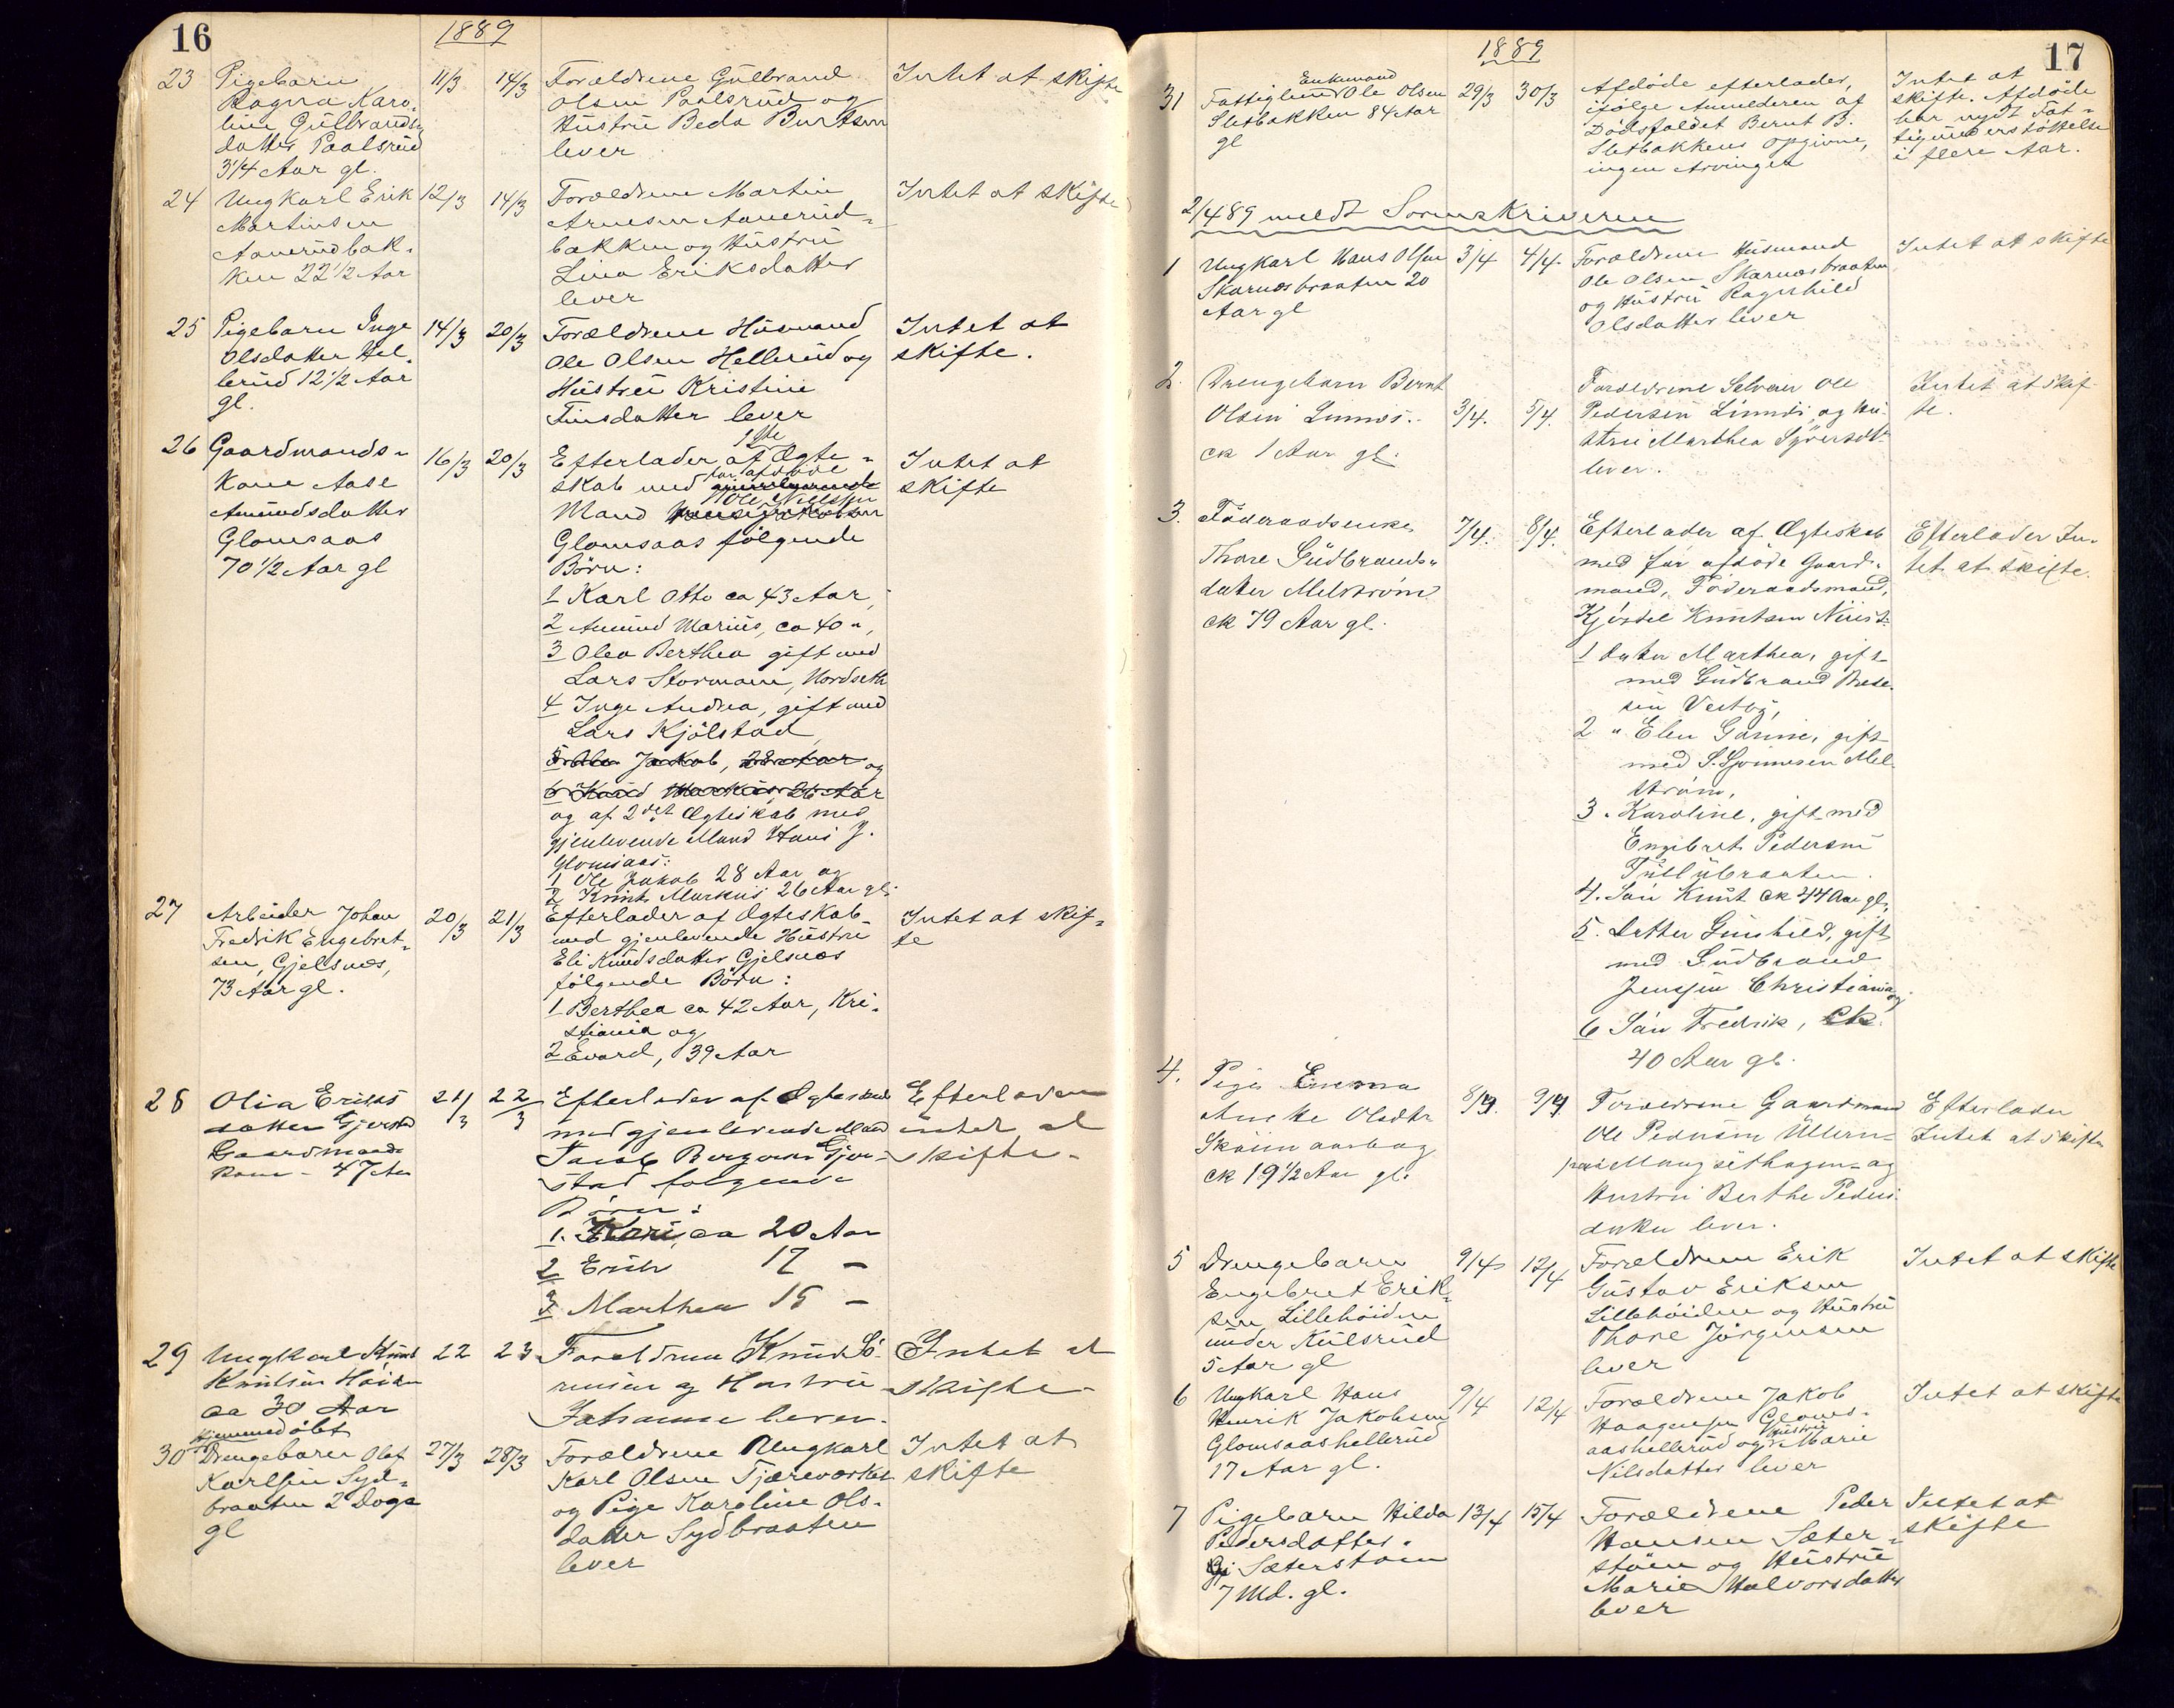 16
1889
23 Pigebarn 11/3 14/3 Forældrene Gulbrand Intet at skifte
Ragna Karo- Olsen Paalsrud og
line Gulbrands- Hustru Beda Burtsen
datter Paalsrud lever
3 1/4 Aar gl.
24 Ungkarl Erik 12/3 14/3 Forældrene Martin Intet at skifte
Martinsen Arnesen Aanerud-
Aanerudbak- bakken og Hustru
ken 22 1/2 Aar Lina Eriksdatter
lever
25 Pigebarn Inga 14/3 20/3 Forældrene Husmand Intet at
Olsdatter Hel- Ole Olsen Hellerud og skifte.
lerud 12 1/2 Aar Hustru Kristine
gl. Finsdatter lever
26 Gaardmands- 16/3 20/3 Efterlader af 1ste Ægte- Intet at
kone Aase skab med før afdøde skifte
Amundsdatter Mand Ole Nilssen
Glomsaas Glomsaas følgende
70 1/2 Aar gl Børn:
1 Karl Otto ca 43 Aar,
2 Amund Marius, ca 40 ",
3 Olea Berthea gift med
Lars Stormoen, Nordseth
4 Inge Andrea, gift med
Lars Kjölstad,
5 Ole Jakob, 28 Aar og
6 Knud Markus, 26 Aar
og af 2det Ægteskab med
gjenlevende Mand Hans J.
Glomsaas:
1 Ole Jakob 28 Aar og
2 Knut Markus 26 Aar gl:
27 Arbeider Johan 20/3 21/3 Efterlader af Ægteskab Intet at skif-
Fredrik Engebret- med gjenlevende Hustru te
sen, Gjelsnæs, Eli Knudsdatter Gjelsnæs
73 Aar gl. følgende Børn:
1 Berthea ca 42 Aar, Kri-
stiania og
2 Evard, 39 Aar
28 Olia Eriks 21/3 22/3 Efterlader af Ægteskab Efterlader
datter Gjerstad med gjenlevende Mand intet at
Gaardmands Jacob Borgersen Gjer- skifte.
kone - 47 Aar stad følgende
Børn:
1. Kari, ca 20 Aar
2 Erik 17 -
3 Marthea 15 -
29 Ungkarl Knut 22 23 Forældrene Knud Sö- Intet at
Knutsen Høiden rensen og Hustru skifte
ca 30 Aar Johanne lever.
hjemmedøbt
30 Drengebarn Olaf 27/3 28/3 Forældrene Ungkarl Intet at
Karlsen Syd- Karl Olsen Tjæreværket skifte
braaten 2 Dage og Pige Karoline Ols-
gl datter Sydbraaten
lever
17
1889
Enkemand
31 Fattiglem Ole Olsen 29/3 30/3 Afdøde efterlader, Intet at
Sletbakken 84 Aar ifølge Anmelderen af skifte. Afdøde
gl Dødsfaldet Bernt B. har nydt Fat-
Sletbakkens Opgivne, tigunderstøttelse
ingen Arvinger i flere Aar.
2/4 89 meldt Sorenskriveren
1 Ungkarl Hans Olsen 3/4 4/4 Forældrene Husmand Intet at skifte
Skarnæsbraaten 20 Ole Olsen Skarnæsbraaten
Aar gl og Hustru Ragnhild
Olsdatter lever
2. Drengebarn Bernt Forældrene Selveier Ole Intet at skif-
Olsen Linnes. 3/4. 5/4. Pedersen Linnæs og Hu- te.
ck 1 Aar gl. stru Marthea Syversdt.
lever.
3. Föderaadsenke 7/4. 8/4. Efterlader af Ægteskab Efterlader In-
Thore Gudbrands- med før afdøde Gaard- tet at skifte.
datter Melstrøm mand, Föderaadsmand,
ck 79 Aar gl. Kjöstel Knutsen
1 Datter Marthea, gift
med Gudbrand
Vestby,
2 " Elen Gunine, gift
med S. Mel-
strøm,
3. Karoline, gift med
Engebret Pedersen
4. Søn Knut ck 44 Aar gl.
5. Datter Gunhild, gift
med Gudbrand
Jensen Christiania og
6 Søn Fredrik, ck.
40 Aar gl.
4. Pige Emma 8/4. 9/4 Forældrene Gaardmand Efterlader
Olsdtr Ole Pedersen Ullern Intet at skifte
Skøienaasbag paa Mangsethagen og
ck 19 1/2 Aar gl. Hustru Berthe Peders-
datter lever.
5 Drengebarn 9/4 12/4 Forældrene Erik Intet at skifte
Engebret Erik- Gustav Eriksen
sen Lillehöiden Lillehöiden og Hustru
under Kulsrud Thore Jörgensen
5 Aar gl lever
6 Ungkarl Hans 9/4 12/4 Forældrene Jakob Intet at skifte
Henrik Jakobsen Haagensen Gloms-
Glomsaashellerud aashellerud og Hustru Marie
17 Aar gl. Nilsdatter lever
7 Pigebarn Hilda 13/4 15/4 Forældrene Peder Intet at
Pedersdatter Hansen Sæter- skifte
Sæterstøen støen og Hustru
7 Md. gl. Marie Halvorsdatter
lever